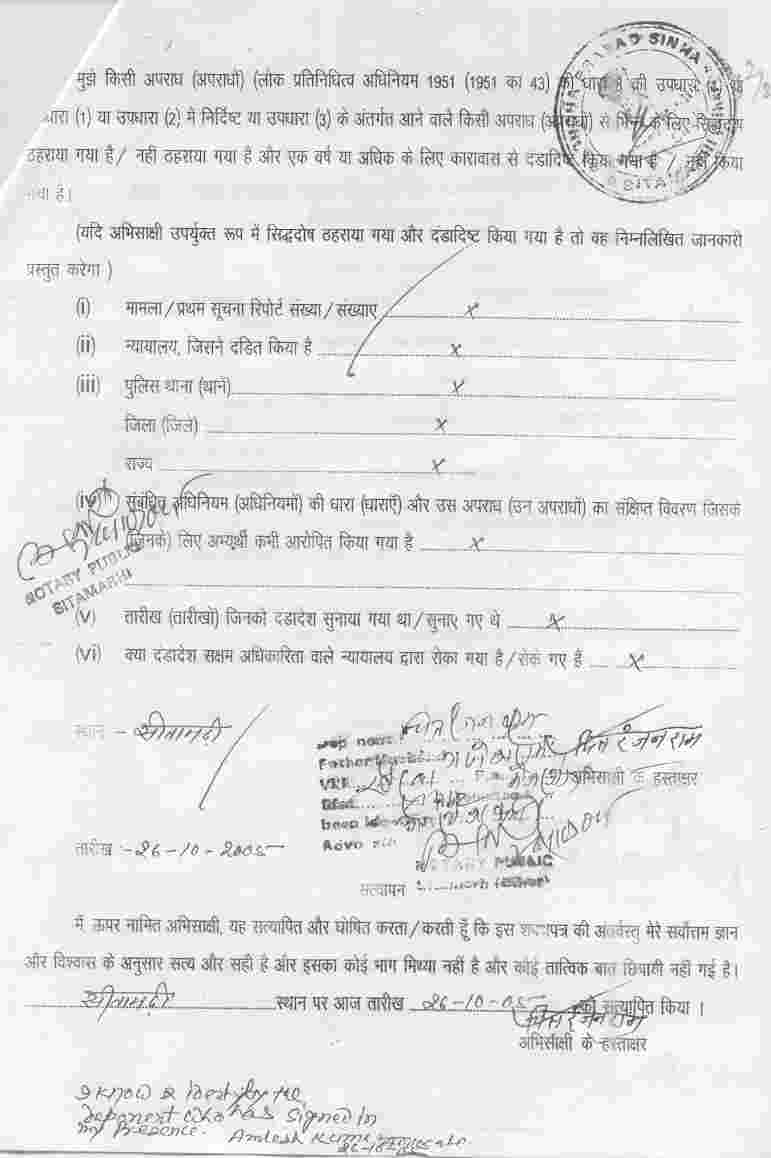 मुझे किसी अपराध (अपराधों) (लोक प्रतिनिधित्व अधिनियम 1951 (1951 का 43) की धारा 8 की उपधारा
धारा (1) या उपधारा (2) में निर्दिष्ट या उपधारा (3) के अंतर्गत आने वाले किसी अपराध (अपराधों) से भिन्न के लिए सिद्धदोष
ठहराया गया है / नहीं ठहराया गया है और एक वर्ष या अधिक के लिए कारावास से दंडादिष्ट किया गया है / नहीं किया
गया है।
(यदि अभिसाक्षी उपर्युक्त रूप में सिद्धदोष ठहराया गया और दंडादिष्ट किया गया है तो वह निम्नलिखित जानकारी
प्रस्तुत करेगा )
(i) मामला / प्रथम सूचना रिपोर्ट संख्या / संख्याए x
(ii) न्यायालय, जिसने दंडित किया है x
(iii) पुलिस थाना (थाने) x
जिला (जिले) x
राज्य x
(iv) संबंधित अधिनियम (अधिनियमों) की धारा (धाराएँ) और उस अपराध (उन अपराधों) का संक्षिप्त विवरण जिसके
(जिनके) लिए अभ्यर्थी कभी आरोपित किया गया है x
NOTARY PUBLIC
SITAMARHI
(v) तारीख (तारीखों) जिनको दंडादेश सुनाया गया था / सुनाए गए थे x
(vi) क्या दंडादेश सक्षम अधिकारिता वाले न्यायालय द्वारा रोका गया है / रोके गए है x
स्थान :- सीतामढ़ी
चित रंजन राम
अभिसाक्षी के हस्ताक्षर
तारीख :- 26-10-2005
NOTARY PUBLIC
सत्यापन
में ऊपर नामित अभिसाक्षी, यह सत्यापित और घोषित करता / करती हूँ कि इस शपथपत्र की अंतर्वस्तु मेरे सर्वोत्तम ज्ञान
और विश्वास के अनुसार सत्य और सही है और इसका कोई भाग मिथ्या नहीं है और कोई तात्विक बात छिपायी नहीं गई है।
सीतामढ़ी स्थान पर आज तारीख 26-10-05 को सत्यापित किया ।
चित रंजन राम
अभिसाक्षी के हस्ताक्षर
I know & identify the
deponent who has signed in
my presence.